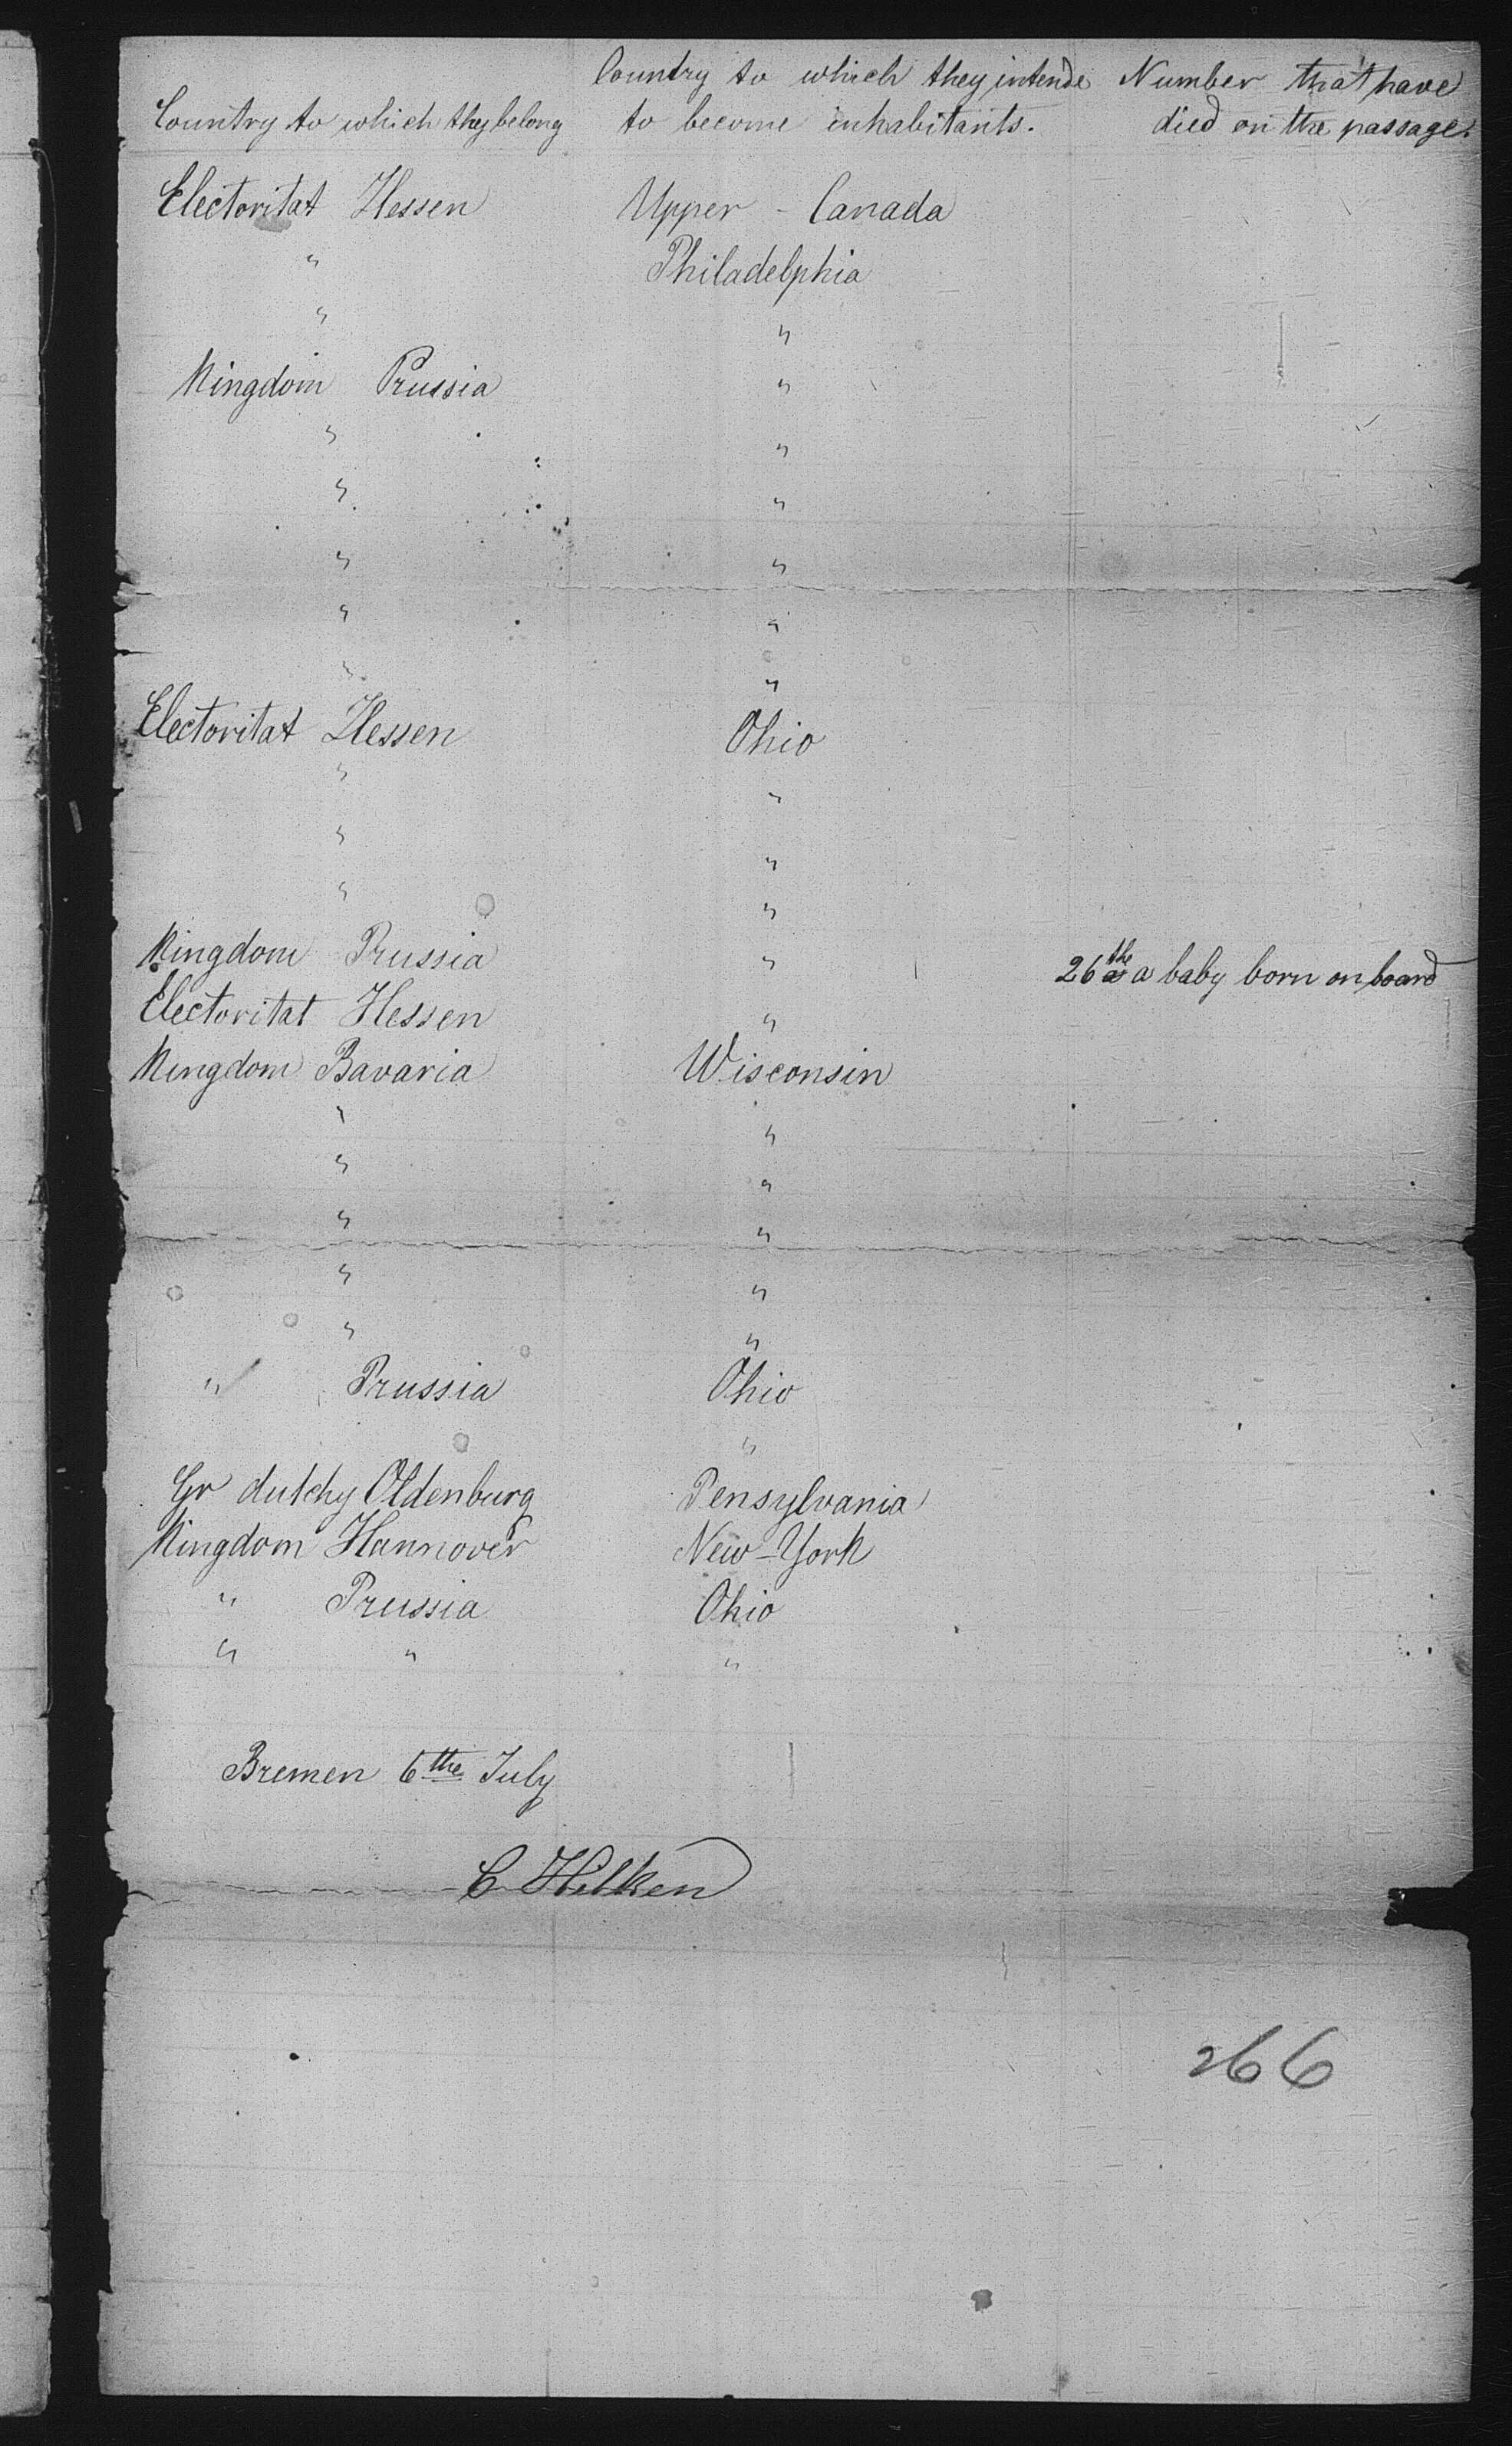 Country to which they belong Country to which they intende to become inhabitants. Number that have died on the passage.
Electoritat Hessen Upper - Canada
" Philadelphia
" "
Kingdom Prussia "
" "
" "
" "
" "
" "
Electoritat Hessen Ohio
" "
" "
" "
Kingdom Prussia " 26the a baby born on board
Electoritat Hessen "
Kingdom Bavaria Wisconsin
" "
" "
" "
" "
" "
" Prussia Ohio
"
Gr dutchy Oldenburg Pensylvania
Kingdom Hannover New-York
" Prussia Ohio
" " "
Bremen 6the July
C Hilken
266